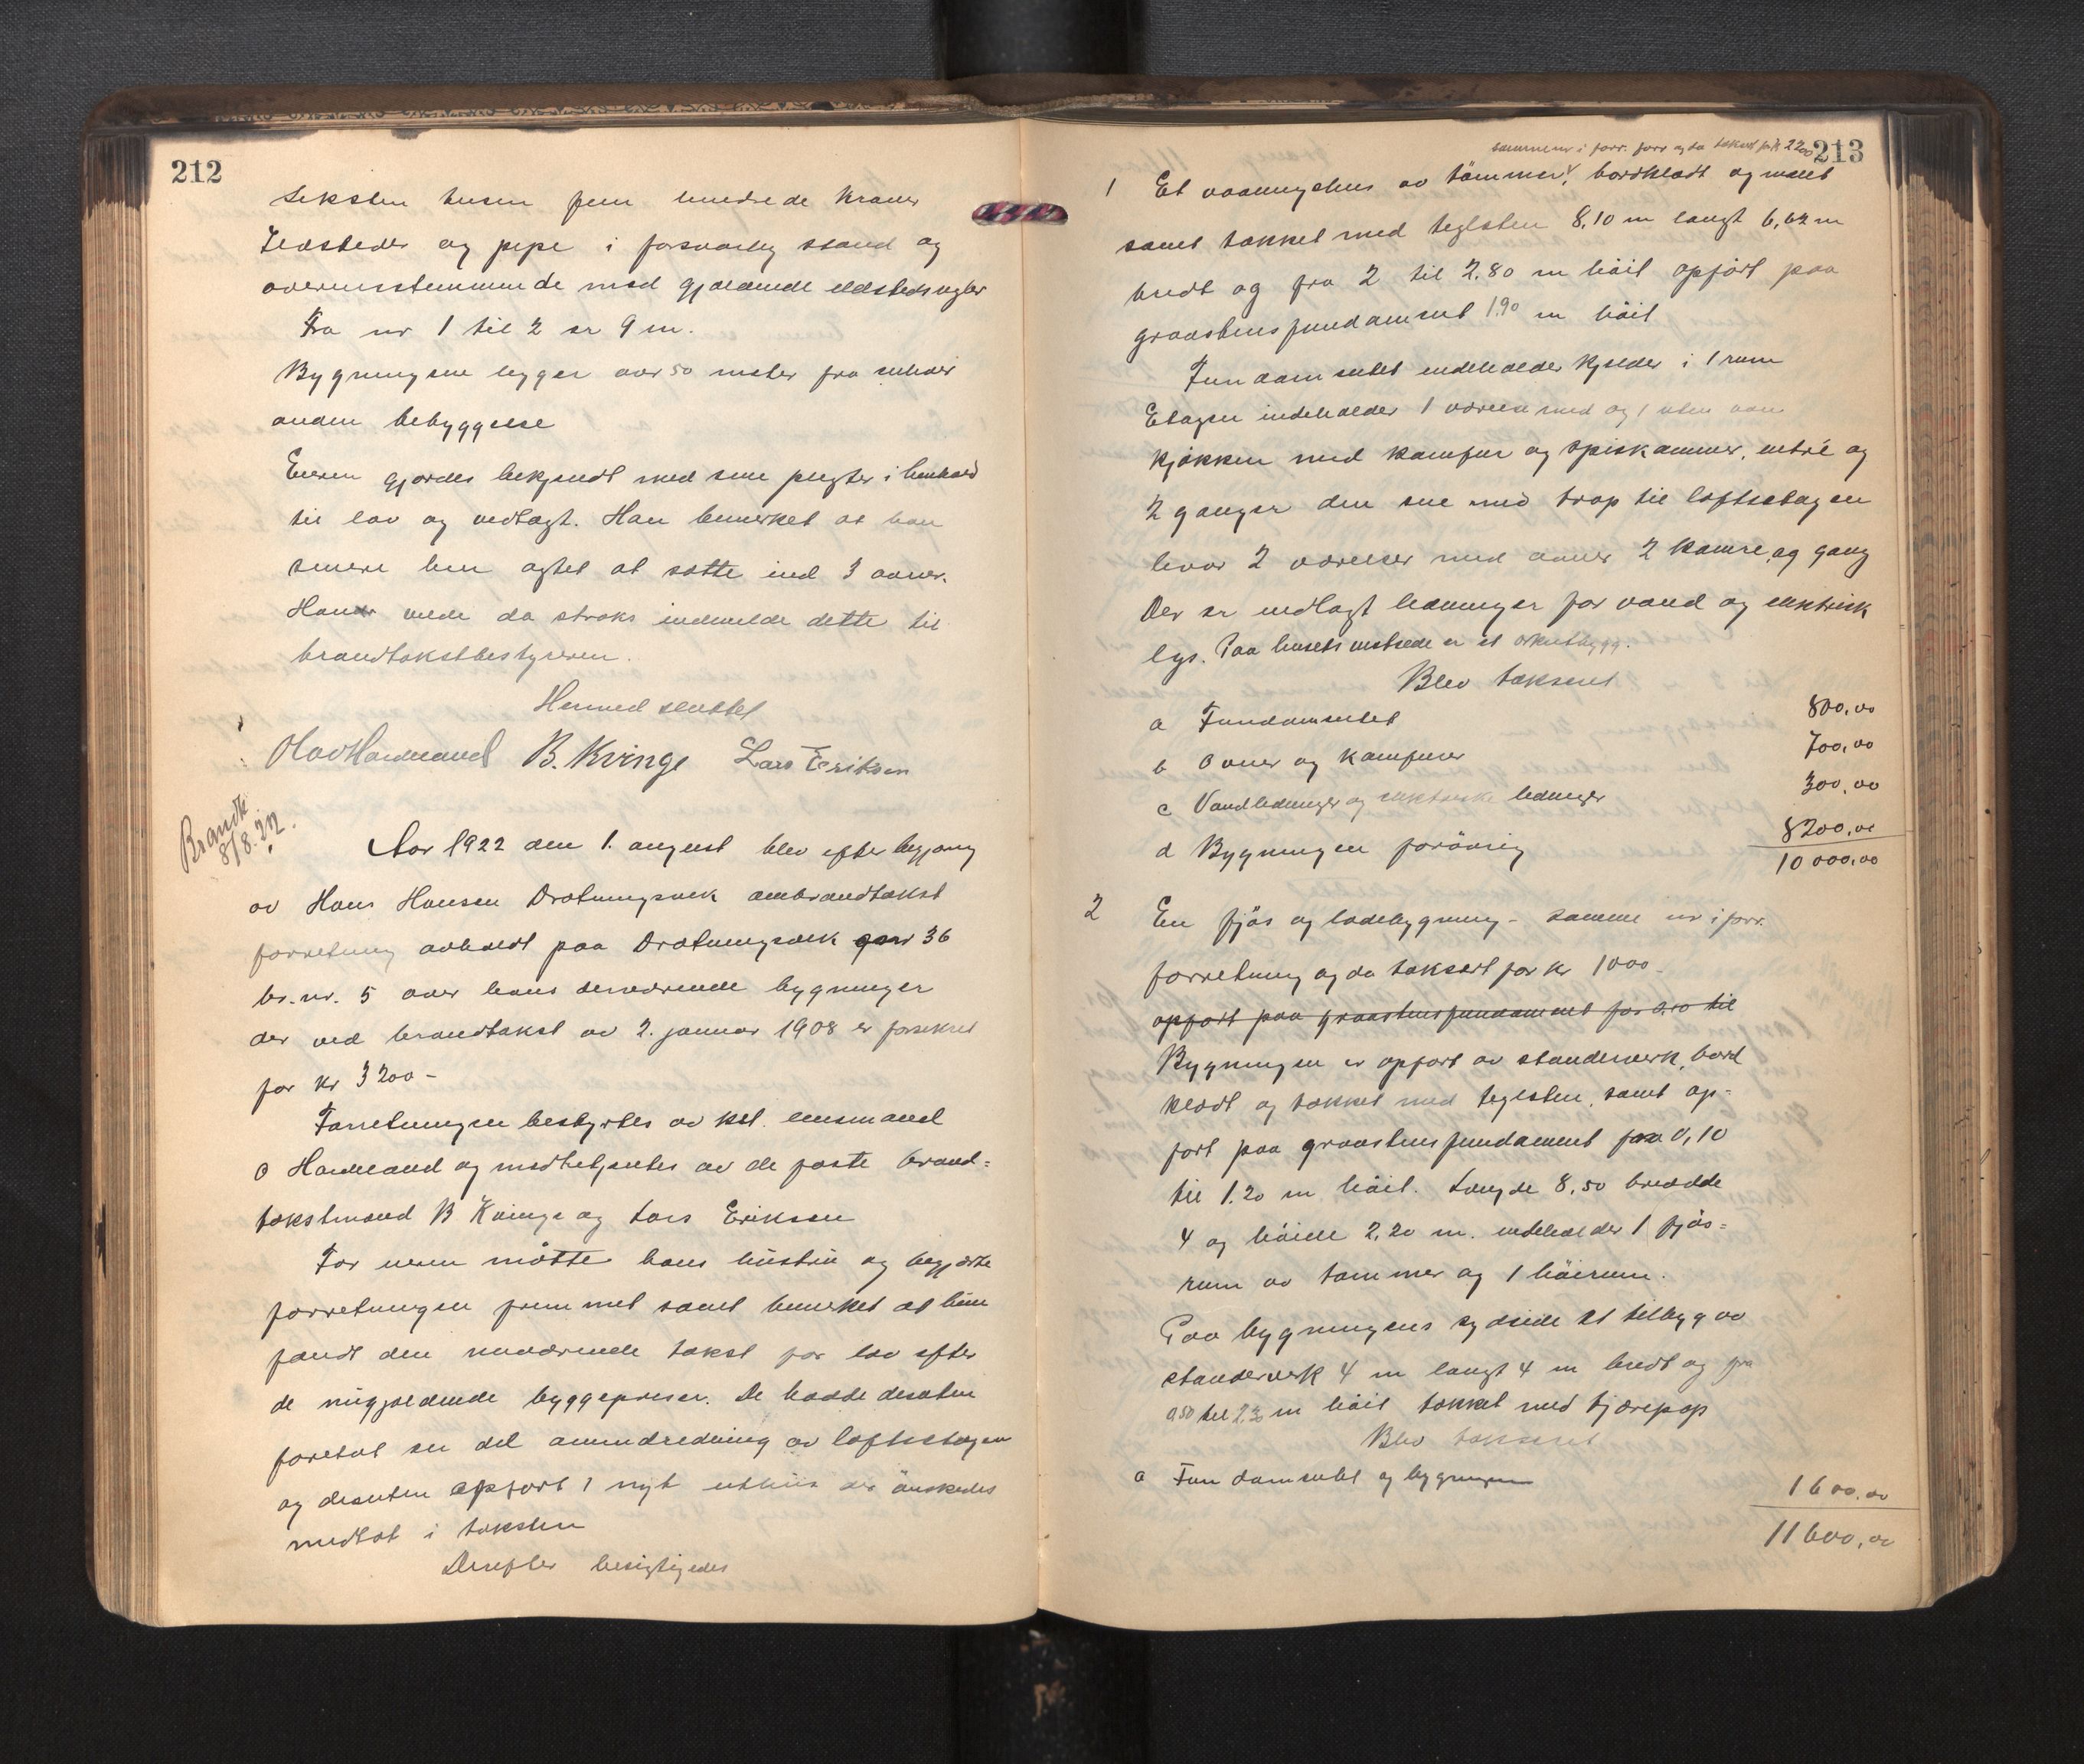 212
seksten tusen fem hundrede kroner
Ildsteder og pipe i forsvarlig stand og
overensstemmende med gjældende ildstedsregler
Fra nr 1 til 2 er 9 m.
Bygningene ligger over 50 meter fra enhver
anden bebyggelse
Eieren gjordes bekjendt med sine pligter i henhold
til lov og vedtægt. Han bemerket at han
senere hen agtet at sætte ind 3 ovner.
Han vilde da straks indmelde dette til
brandtakstbestyreren.
Hermed sluttet
Olav Hardeland B. Kvinge Lars Eriksen
Brandk
8/8.22.
Aar 1922 den 1. august blev efter begjæring
av Hans Hansen Drotningsvik ombrandtakst
forretning avholdt paa Drotningsvik gnr 36
br. nr. 5 over hans derværende bygninger
der ved brandtakst av 2. januar 1908 er forsikret
for kr 3200 -
Forretningen bestyrtes av kst. lensmand
O Hardeland og medbetjentes av de faste brand=
takstmænd B Kvinge og Lars Eriksen
For eieren møtte hans hustru og begjærte
forretningen fremmet samt bemerket at hun
fandt den nuværende takst for lav efter
de nugjældende byggepriser. De hadde desuten
foretat en del omindredning av loftsetagen
og desuten opført 1 nyt uthus der ønskedes
medtat i taksten
Derefter besigtigedes
213
samme nr i forr. forr og da takseret for kr 2200
1 Et vaaningshus av tømmer, bordklædt og malet
samt tækket med teglsten 8,10 m langt 6,62 m
bredt og fra 2 til 2.80 m høit opført paa
graastensfundament 1.90 m høit
Fundamentet indeholder kjelder i 1 rum
Etagen indeholder 1 værelse med og 1 uten ovn
kjøkken med komfur og spiskammer, entré og
2 ganger den ene med trap til loftsetagen
hvor 2 værelser med ovner 2 kamre og gang
Der er indlagt ledninger for vand og elektrisk
lys. Paa husets vestside er et arkutbygg.
Blev takseret
a Fundamentet 800,00
b Ovner og komfurer 700,00
c Vandledninger og elektriske ledninger 300,00
d Bygningen forøvrig 8200,00
10000,00
2 En fjøs og ladebygning - samme nr i forr.
forretning og da taksert for kr 1000 -
opført paa graastensfundament fra 0,10 til
Bygningen er opført av standerverk, bord
klædt og tækket med teglsten, samt op-
ført paa graastensfundament fra 0,10
til 1.20 m høit. Længde 8,50 bredde
4 og høide 2,20 m. indeholder 1 fjøs=
rum av tømmer og 1 høirum.
Paa bygningens sydside et tilbygg av
standerverk 4 m langt 4 m bredt og fra
0.50 til 2.30 m høit tækket med tjærepap
Blev takseret
a Fundamentet og bygningen 1600,00
11600,00